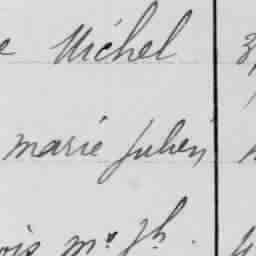 e Michel
marie Julien
ois m. Jh.